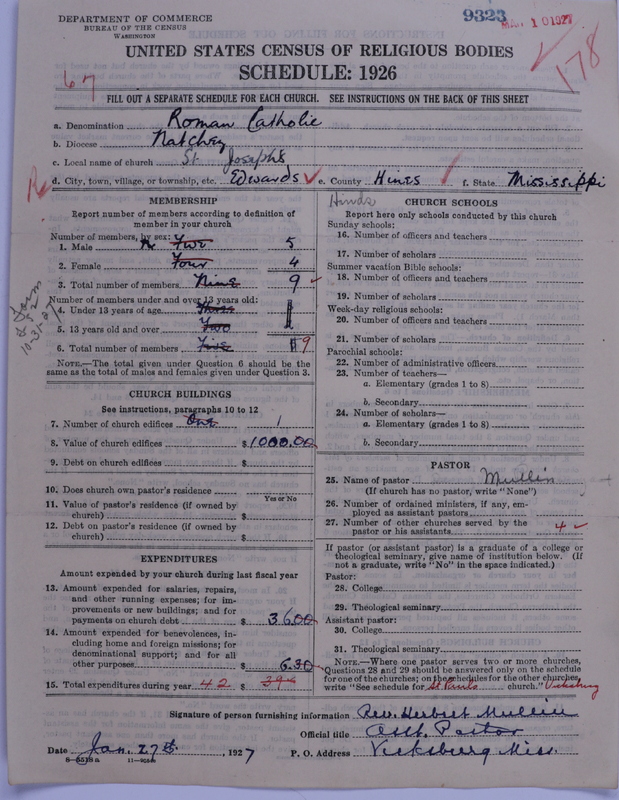 DEPARTMENT OF COMMERCE
BUREAU OF THE CENSUS
WASHINGTON
9323
MAR 10 1927
178
67
UNITED STATES CENSUS OF RELIGIOUS BODIES
SCHEDULE: 1926
FILL OUT A SEPARATE SCHEDULE FOR EACH CHURCH. SEE INSTRUCTIONS ON THE BACK OF THIS SHEET
a. Denomination Roman Catholic
b. Diocese Natchez
c. Local name of church St Josephs
d. City, town, village, or township, etc. Edwards e. County Hines f. State Mississippi
Hinds
MEMBERSHIP
Report number of members according to definition of
member in your church
Number of members, by sex:
1. Male Two 5
2. Female Four 4
3. Total number of members Nine 9
Number of members under and over 13 years old:
4. Under 13 years of age Three
5. 13 years old and over Two
6. Total number of members Five 9
NOTE.—The total given under Question 6 should be the
same as the total of males and females given under Question 3.
CHURCH BUILDINGS
See instructions, paragraphs 10 to 12
7. Number of church edifices One 1
8. Value of church edifices $ 1000.00
9. Debt on church edifices $
10. Does church own pastor's residence
Yes or No
11. Value of pastor's residence (if owned by
church) $
12. Debt on pastor's residence (if owned by
church) $
EXPENDITURES
Amount expended by your church during last fiscal year
13. Amount expended for salaries, repairs,
and other running expenses; for im-
provements or new buildings; and for
payments on church debt $ 36.00
14. Amount expended for benevolences, in-
cluding home and foreign missions; for
denominational support; and for all
other purposes $ 6.30
15. Total expenditures during year 42 $
CHURCH SCHOOLS
Report here only schools conducted by this church
Sunday schools:
16. Number of officers and teachers
17. Number of scholars
Summer vacation Bible schools:
18. Number of officers and teachers
19. Number of scholars
Week-day religious schools:
20. Number of officers and teachers
21. Number of scholars
Parochial schools:
22. Number of administrative officers
23. Number of teachers—
a. Elementary (grades 1 to 8)
b. Secondary
24. Number of scholars—
a. Elementary (grades 1 to 8)
b. Secondary
PASTOR
25. Name of pastor Mullin
(If church has no pastor, write "None")
26. Number of ordained ministers, if any, em-
ployed as assistant pastors
27. Number of other churches served by the
pastor or his assistants 4
If pastor (or assistant pastor) is a graduate of a college or
theological seminary, give name of institution below. (If
not a graduate, write "No" in the space indicated.)
Pastor:
28. College
29. Theological seminary
Assistant pastor:
30. College
31. Theological seminary
NOTE.—Where one pastor serves two or more churches,
Questions 28 and 29 should be answered only on the schedule
for one of the churches; on the schedules for the other churches,
write "See schedule for St Pauls church." Vicksburg
Signature of person furnishing information Rev. Herbert Mullin
Official title Asst. Pastor
Date Jan. 27th, 1927 P. O. Address Vicksburg Miss.